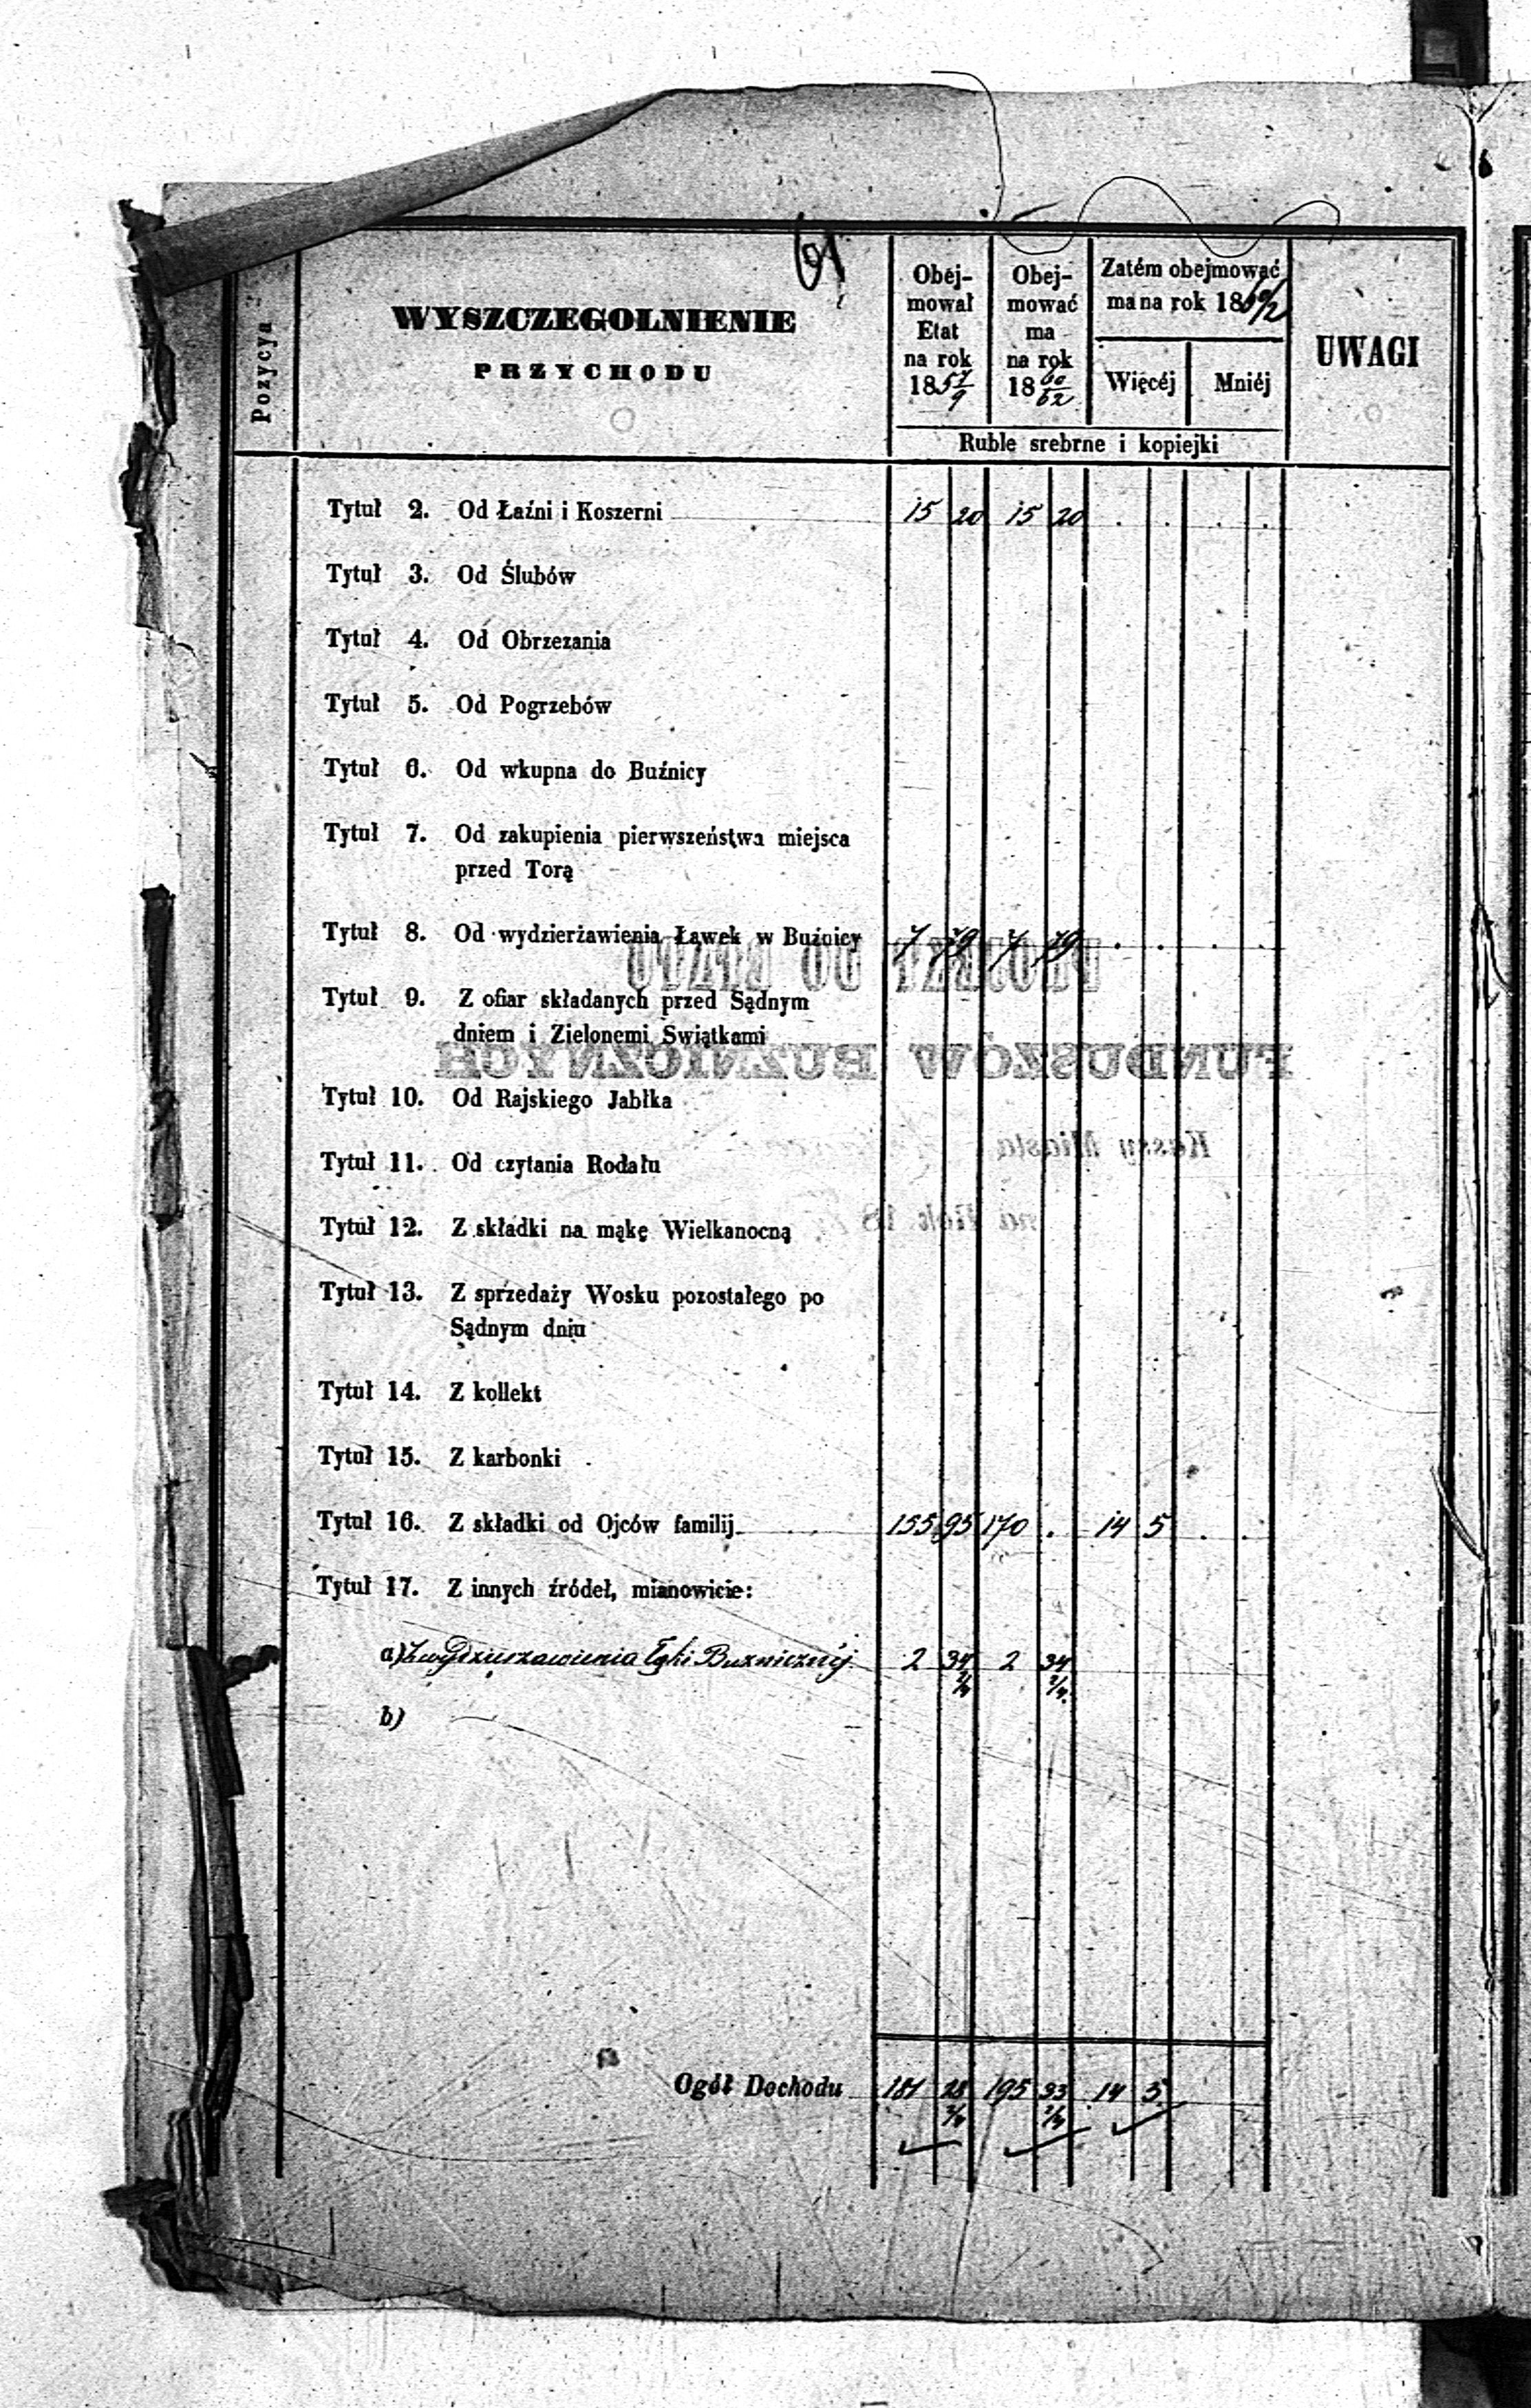 Pozycya
WYSZCZEGOLNIENIE
PRZYCHODU
Obej-
mował
Etat
na rok
18 57/9
Obej-
mować
ma
na rok
18 60/62
Zatém obejmować
ma na rok 18 60/2
Więcéj Mniéj
UWAGI
Ruble srebrne i kopiejki
Tytuł 2. Od Łaźni i Koszerni 15 20 15 20 . . . .
Tytuł 3. Od Ślubów
Tytuł 4. Od Obrzezania
Tytuł 5. Od Pogrzebów
Tytuł 6. Od wkupna do Buźnicy
Tytuł 7. Od zakupienia pierwszeństwa miejsca
przed Torą
Tytuł 8. Od wydzierżawienia Ławek w Buźnicy 7 79 7 79 . . . .
Tytuł 9. Z ofiar składanych przed Sądnym
dniem i Zielonemi Świątkami
Tytuł 10. Od Rajskiego Jabłka
Tytuł 11. Od czytania Rodału
Tytuł 12. Z składki na mąkę Wielkanocną
Tytuł 13. Z sprzedaży Wosku pozostałego po
Sądnym dniu
Tytuł 14. Z kollekt
Tytuł 15. Z karbonki
Tytuł 16. Z składki od Ojców familij 155 95 170 . 14 5 . .
Tytuł 17. Z innych źródeł, mianowicie:
a) Z wydzierżawienia Łąki Buzniczney 2 34 1/4 2 34 1/4
b)
Ogół Dochodu 181 28 1/4 195 33 1/4 14 5
PROJEKT DO ETATU
FUNDUSZÓW BUŹNICZNYCH
Kassy Miasta
na Rok 18